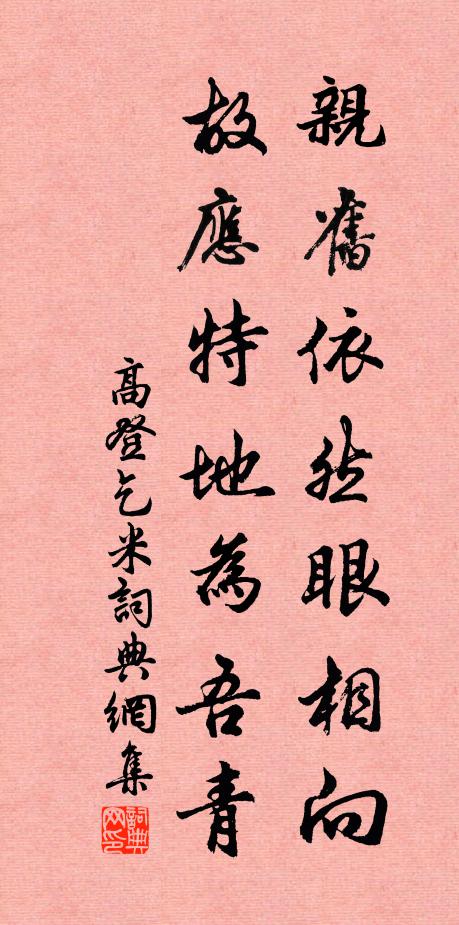 親舊依然眼相向
故應特地為吾青
高登乞米詞典網集
詞典网印